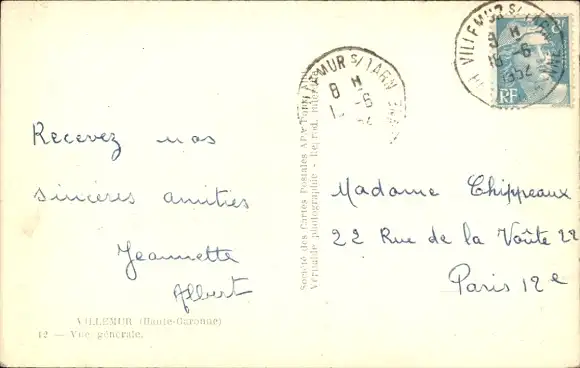 Recevez nos
sincères amitiés
Jeannette
Albert
VILLEMUR (Haute-Garonne)
12 — Vue générale.
Société des Cartes Postales
Véritable photographie - Reprod.
MUR S/TARN
8 H
6
VILLEMUR S/TARN
8 H
16 - 6
1952
RF
Madame Chippeaux
22 Rue de la Voûte 22
Paris 12e